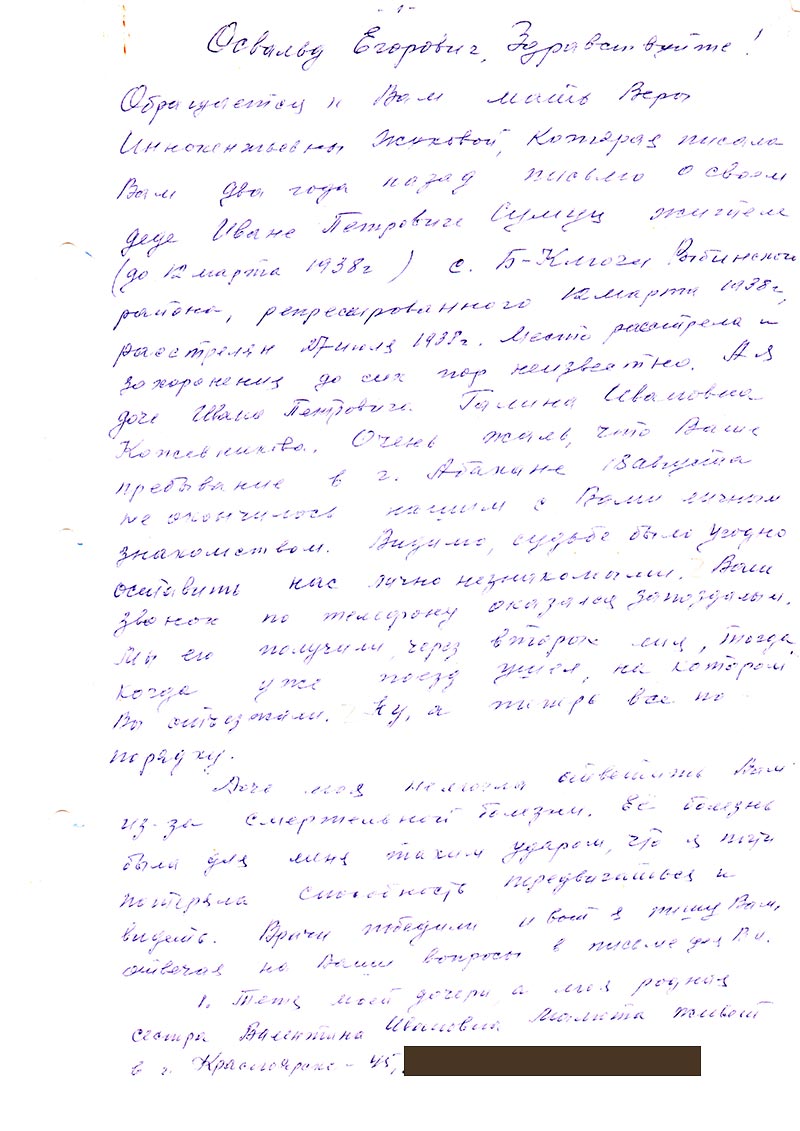 - 1 -
Освальд Егорович, Здравствуйте!
Обращается к Вам мать Веры
Иннокентьевны Жуковой, которая писала
Вам два года назад письмо о своем
деде Иване Петровиче Сумец жителе
(до 12 марта 1938г) с. Б-Ключи Рыбинского
района, репрессированного 12 марта 1938г,
расстрелян 27 июля 1938г. Место расстрела и
захоронения до сих пор неизвестно. А я
дочь Ивана Петровича Галина Ивановна
Кожевникова. Очень жаль, что Ваше
пребывание в г. Абакане 18 августа
не окончилось нашим с Вами личным
знакомством. Видимо, судьбе было угодно
оставить нас лично незнакомыми. Ваш
звонок по телефону оказался запоздалым.
Мы его получили через вторых лиц, тогда,
когда уже поезд ушел, на котором
Вы отъезжали. Ну, а теперь все по
порядку.
Дочь моя не могла ответить Вам
из-за смертельной болезни. Её болезнь
была для меня таким ударом, что я почти
потеряла способность передвигаться и
видеть. Врачи победили и вот я пишу Вам,
отвечая на Ваши вопросы в письме для В.И.
1. Тетя моей дочери, а моя родная
сестра Валентина Ивановна живет
в г. Красноярске - 45,